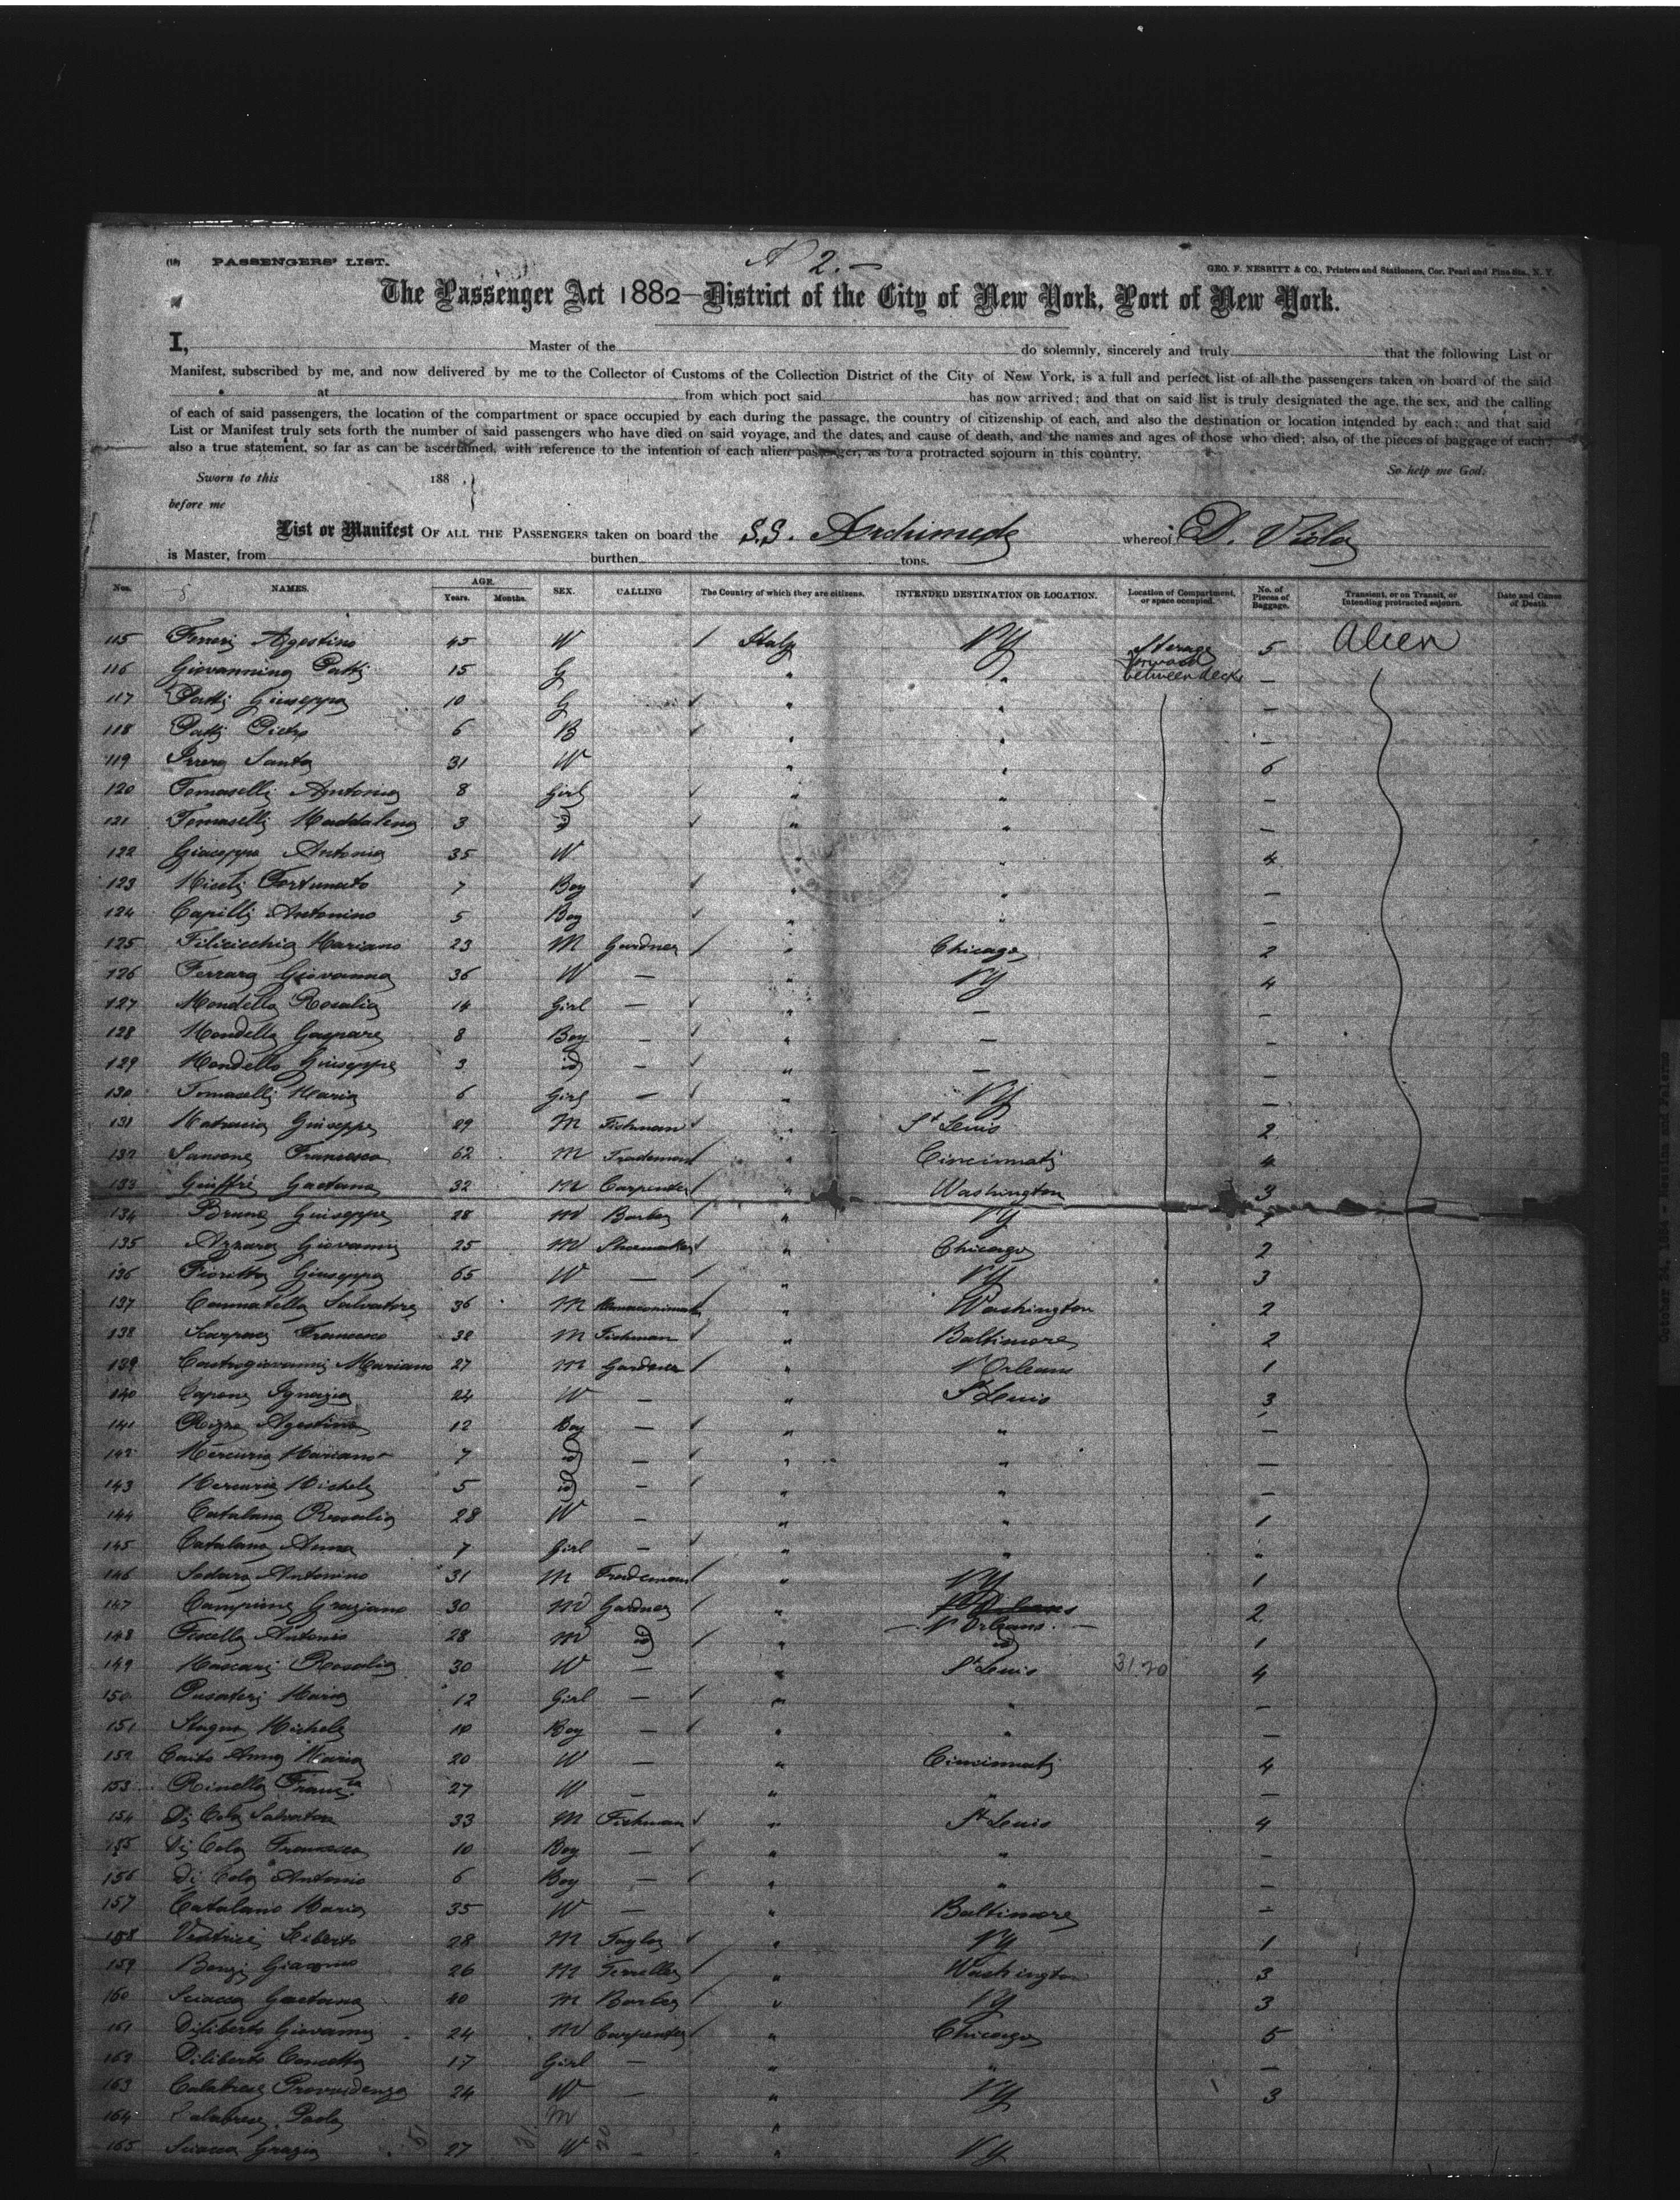 (18) PASSENGERS' LIST.
2.—
GEO. F. NESBITT & CO., Printers and Stationers, Cor. Pearl and Pine Sts., N. Y.
The Passenger Act 1882—District of the City of New York, Port of New York.
I, Master of the do solemnly, sincerely and truly that the following List or
Manifest, subscribed by me, and now delivered by me to the Collector of Customs of the Collection District of the City of New York, is a full and perfect list of all the passengers taken on board of the said
at from which port said has now arrived; and that on said list is truly designated the age, the sex, and the calling
of each of said passengers, the location of the compartment or space occupied by each during the passage, the country of citizenship of each, and also the destination or location intended by each; and that said
List or Manifest truly sets forth the number of said passengers who have died on said voyage, and the dates, and cause of death, and the names and ages of those who died; also, of the pieces of baggage of each;
also a true statement, so far as can be ascertained, with reference to the intention of each alien passenger, as to a protracted sojourn in this country.
Sworn to this 188 } So help me God.
before me
List or Manifest OF ALL THE PASSENGERS taken on board the S.S. Archimede whereof D. Viola
is Master, from burthen tons.
Nos. NAMES. AGE. Years. Months. SEX. CALLING The Country of which they are citizens. INTENDED DESTINATION OR LOCATION. Location of Compartment, or space occupied. No. of Pieces of Baggage. Transient, or on Transit, or Intending protracted sojourn. Date and Cause of Death.
115 Agostino 45 W Italy NY Sterage forward between decks 5 Alien
116 Giovannina Patti 15 G " " —
117 Patti Giuseppa 10 G " " —
118 Patti Pietro 6 B " " —
119 Santa 31 W " " 6
120 Tomaselli Antonia 8 Girl " " —
121 Tomaselli Maddalena 3 id " " —
122 Antonia 35 W " " 4
123 Fortunato 7 Boy " " —
124 Capilli Antonino 5 Boy " " —
125 Filicicchia Mariano 23 M Gardner " Chicago 2
126 Ferrara Giovanna 36 W — " NY 4
127 Mondello Rosalia 14 Girl — " — —
128 Mondello Gaspare 8 Boy — " — —
129 Mondello Giuseppe 3 id — " — —
130 Tomaselli Maria 6 Girl — " NY —
131 Giuseppe 29 M Fishman " St Louis 2
132 Sansone Francesco 62 M Trademan " Cincinnati 4
133 Giuffrè Gaetano 32 M Carpenter " Washington 3
134 Bruno Giuseppe 28 M Barber " NY
135 Azzara Giovanni 25 M Shoemaker " Chicago 2
136 Fioritta Giuseppa 65 W — " NY 3
137 Cannatella Salvatore 36 M " Washington 2
138 Scarpaci Francesco 38 M Fishman " Baltimore 2
139 Castrogiovanni Mariano 27 M Gardner " N Orleans 1
140 Capone Ignazia 24 W — " St Louis 3
141 Agostino 12 Boy — " " —
142 Mercurio Mariano 7 id — " " —
143 Mercurio Michele 5 id — " " —
144 Catalano Rosalia 28 W — " " 1
145 Catalano Anna 7 Girl — " " "
146 Sodaro Antonino 31 M Trademan " NY 1
147 Campione Graziano 30 M Gardner " N Orleans 2
148 Fiscella Antonio 28 M id " id 1
149 Mascari Rosalia 30 W — " St Louis 3120 4
150 Pusateri Maria 12 Girl — " " —
151 Stagno Michele 10 Boy — " " —
152 Caito Anna Maria 20 W — " Cincinnati 4
153 Rinella Francca 27 W — " " —
154 Di Cola Salvatore 33 M Fishman " St Louis 4
155 Di Cola Francesco 10 Boy — " " —
156 Di Cola Antonio 6 Boy — " " —
157 Catalano Maria 35 W — " Baltimore —
158 Liberto 28 M Taylor " NY 1
159 Giacomo 26 M " Washington 3
160 Sciacca Gaetano 40 M Barber " NY 3
161 Diliberto Giovanni 24 M Carpenter " Chicago 5
162 Diliberto Concetta 17 Girl — " " —
163 Calabrese Provvidenza 24 W — " NY 3
164 Calabrese Paolo M "
165 Sciacca Grazia 27 W — " NY